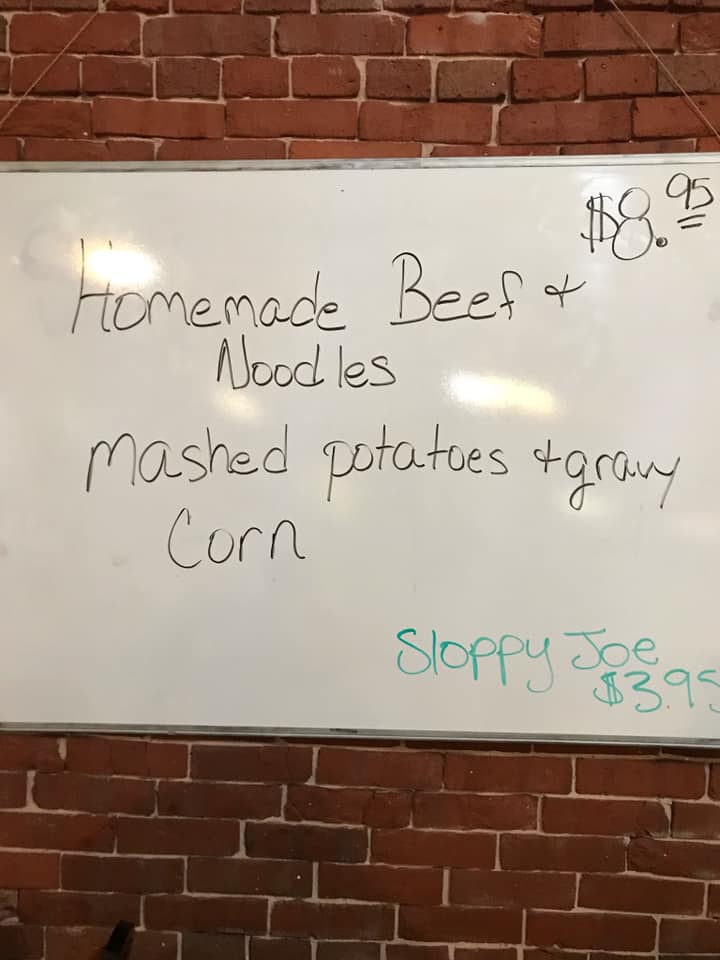 $8.95
Homemade Beef &
Noodles
mashed potatoes & gravy
Corn
Sloppy Joe
$3.95